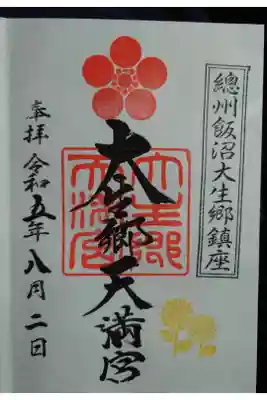 總州飯沼大生郷鎮座
大生郷天満宮
奉拝 令和五年八月二日